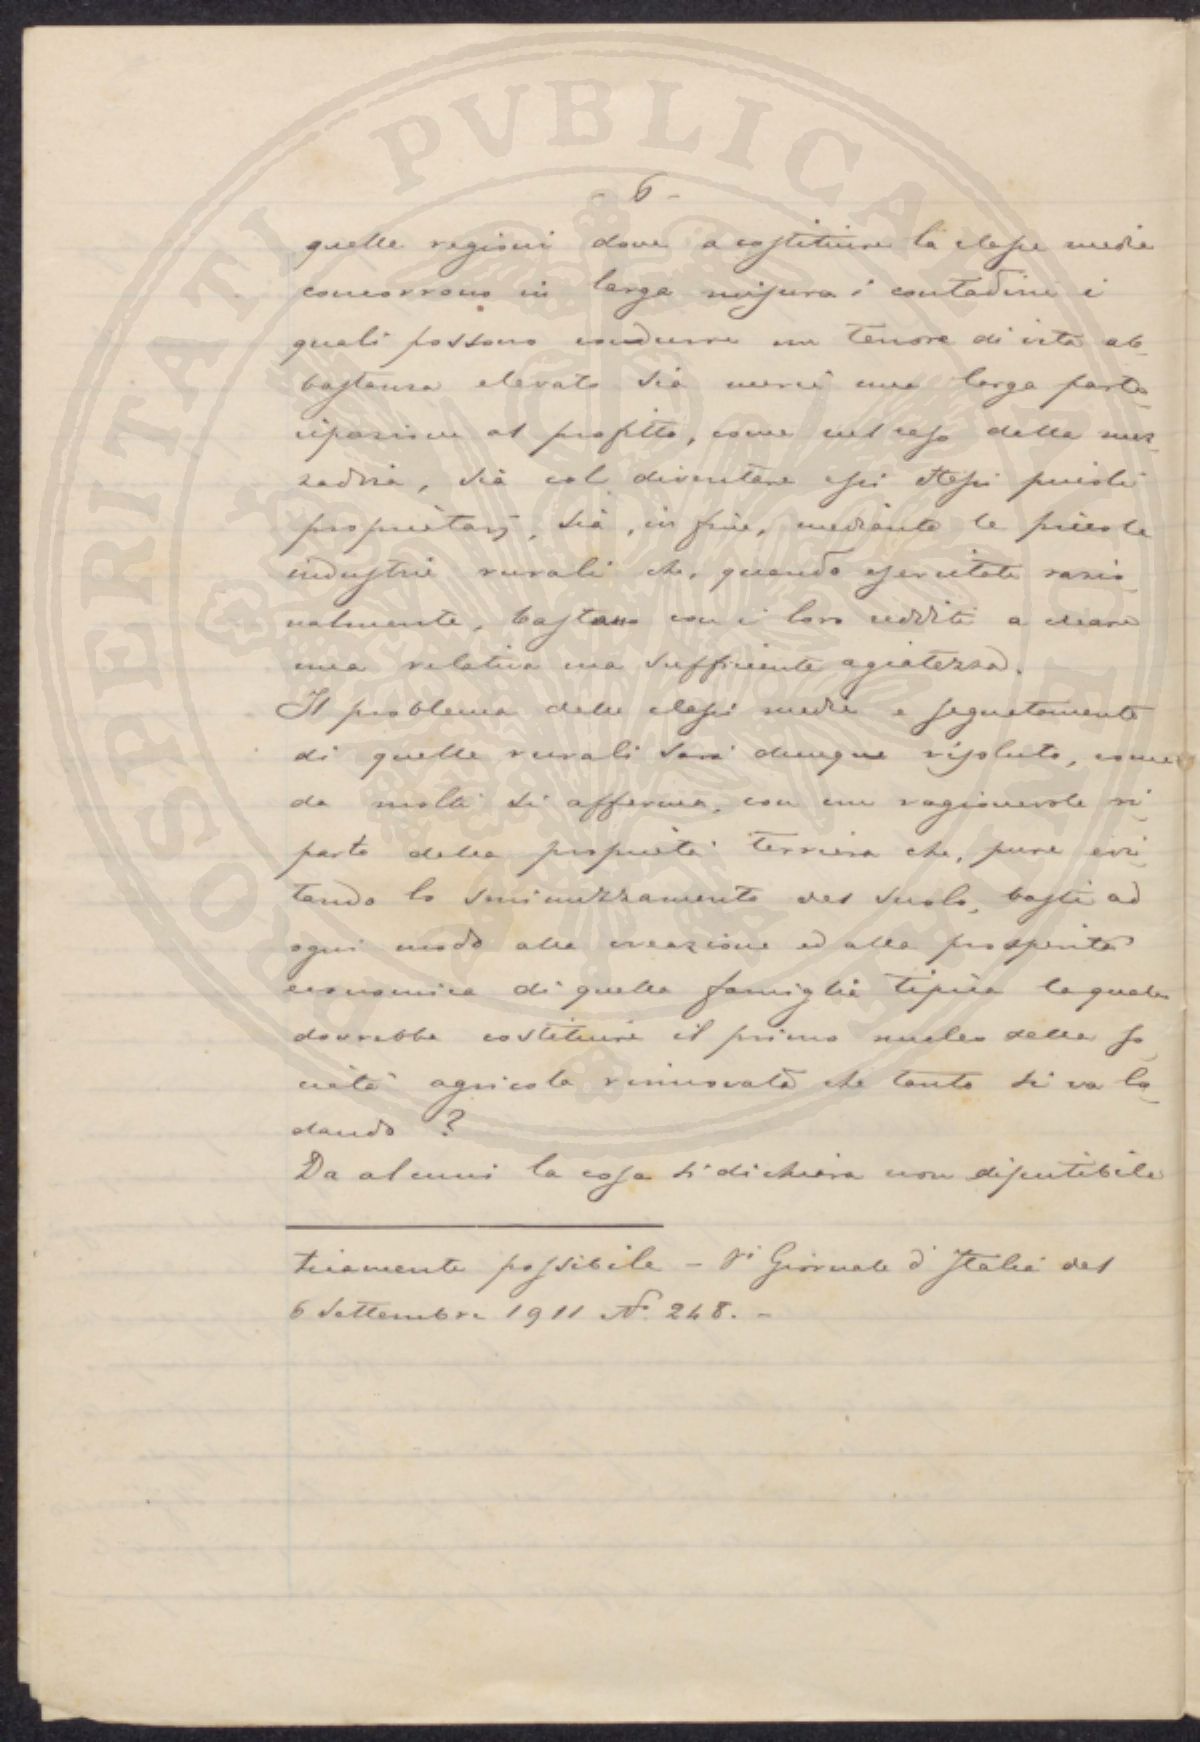 - 6 -
quelle regioni dove a costituire la classe media
concorrono in larga misura i contadini i
quali possono condurre un tenore di vita ab-
bastanza elevato sia mercè una larga parte-
cipazione al profitto, come nel caso della mez-
zadria, sia col diventare essi stessi piccoli
proprietarj, sia, in fine, mediante le piccole
industrie rurali che, quando esercitate razio-
nalmente, bastano con i loro redditi a creare
una relativa ma sufficiente agiatezza.
Il problema delle classi medie e segnatamente
di quelle rurali sarà dunque risoluto, come
da molti si afferma, con un ragionevole ri-
parto della proprietà terriera che, pure evi-
tando lo sminuzzamento del suolo, basti ad
ogni modo alla creazione ed alla prosperità
economica di quella famiglia tipica la quale
dovrebbe costituire il primo nucleo della so-
cietà agricola rinnovata che tanto si va lo-
dando ?
Da alcuni la cosa si dichiara non discutibile
ticamente possibile - Giornale d'Italia del
6 Settembre 1911 N.° 248. -
PROSPERITATI PVBLICAE